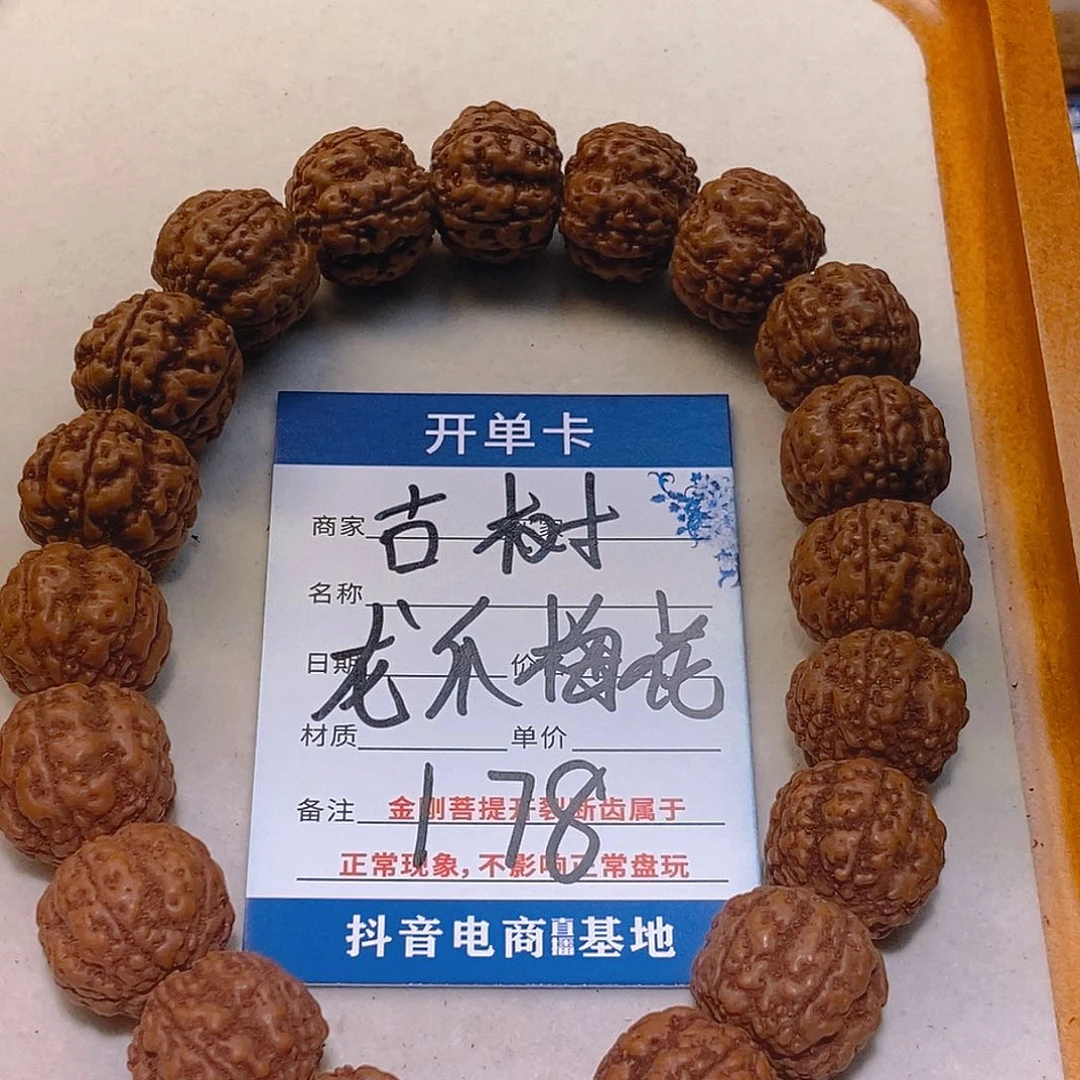 开单卡
商家 古树
名称
龙爪梅花
日期 价
材质 单价
178
备注 金刚菩提开裂断齿属于
正常现象,不影响正常盘玩
抖音电商直播基地